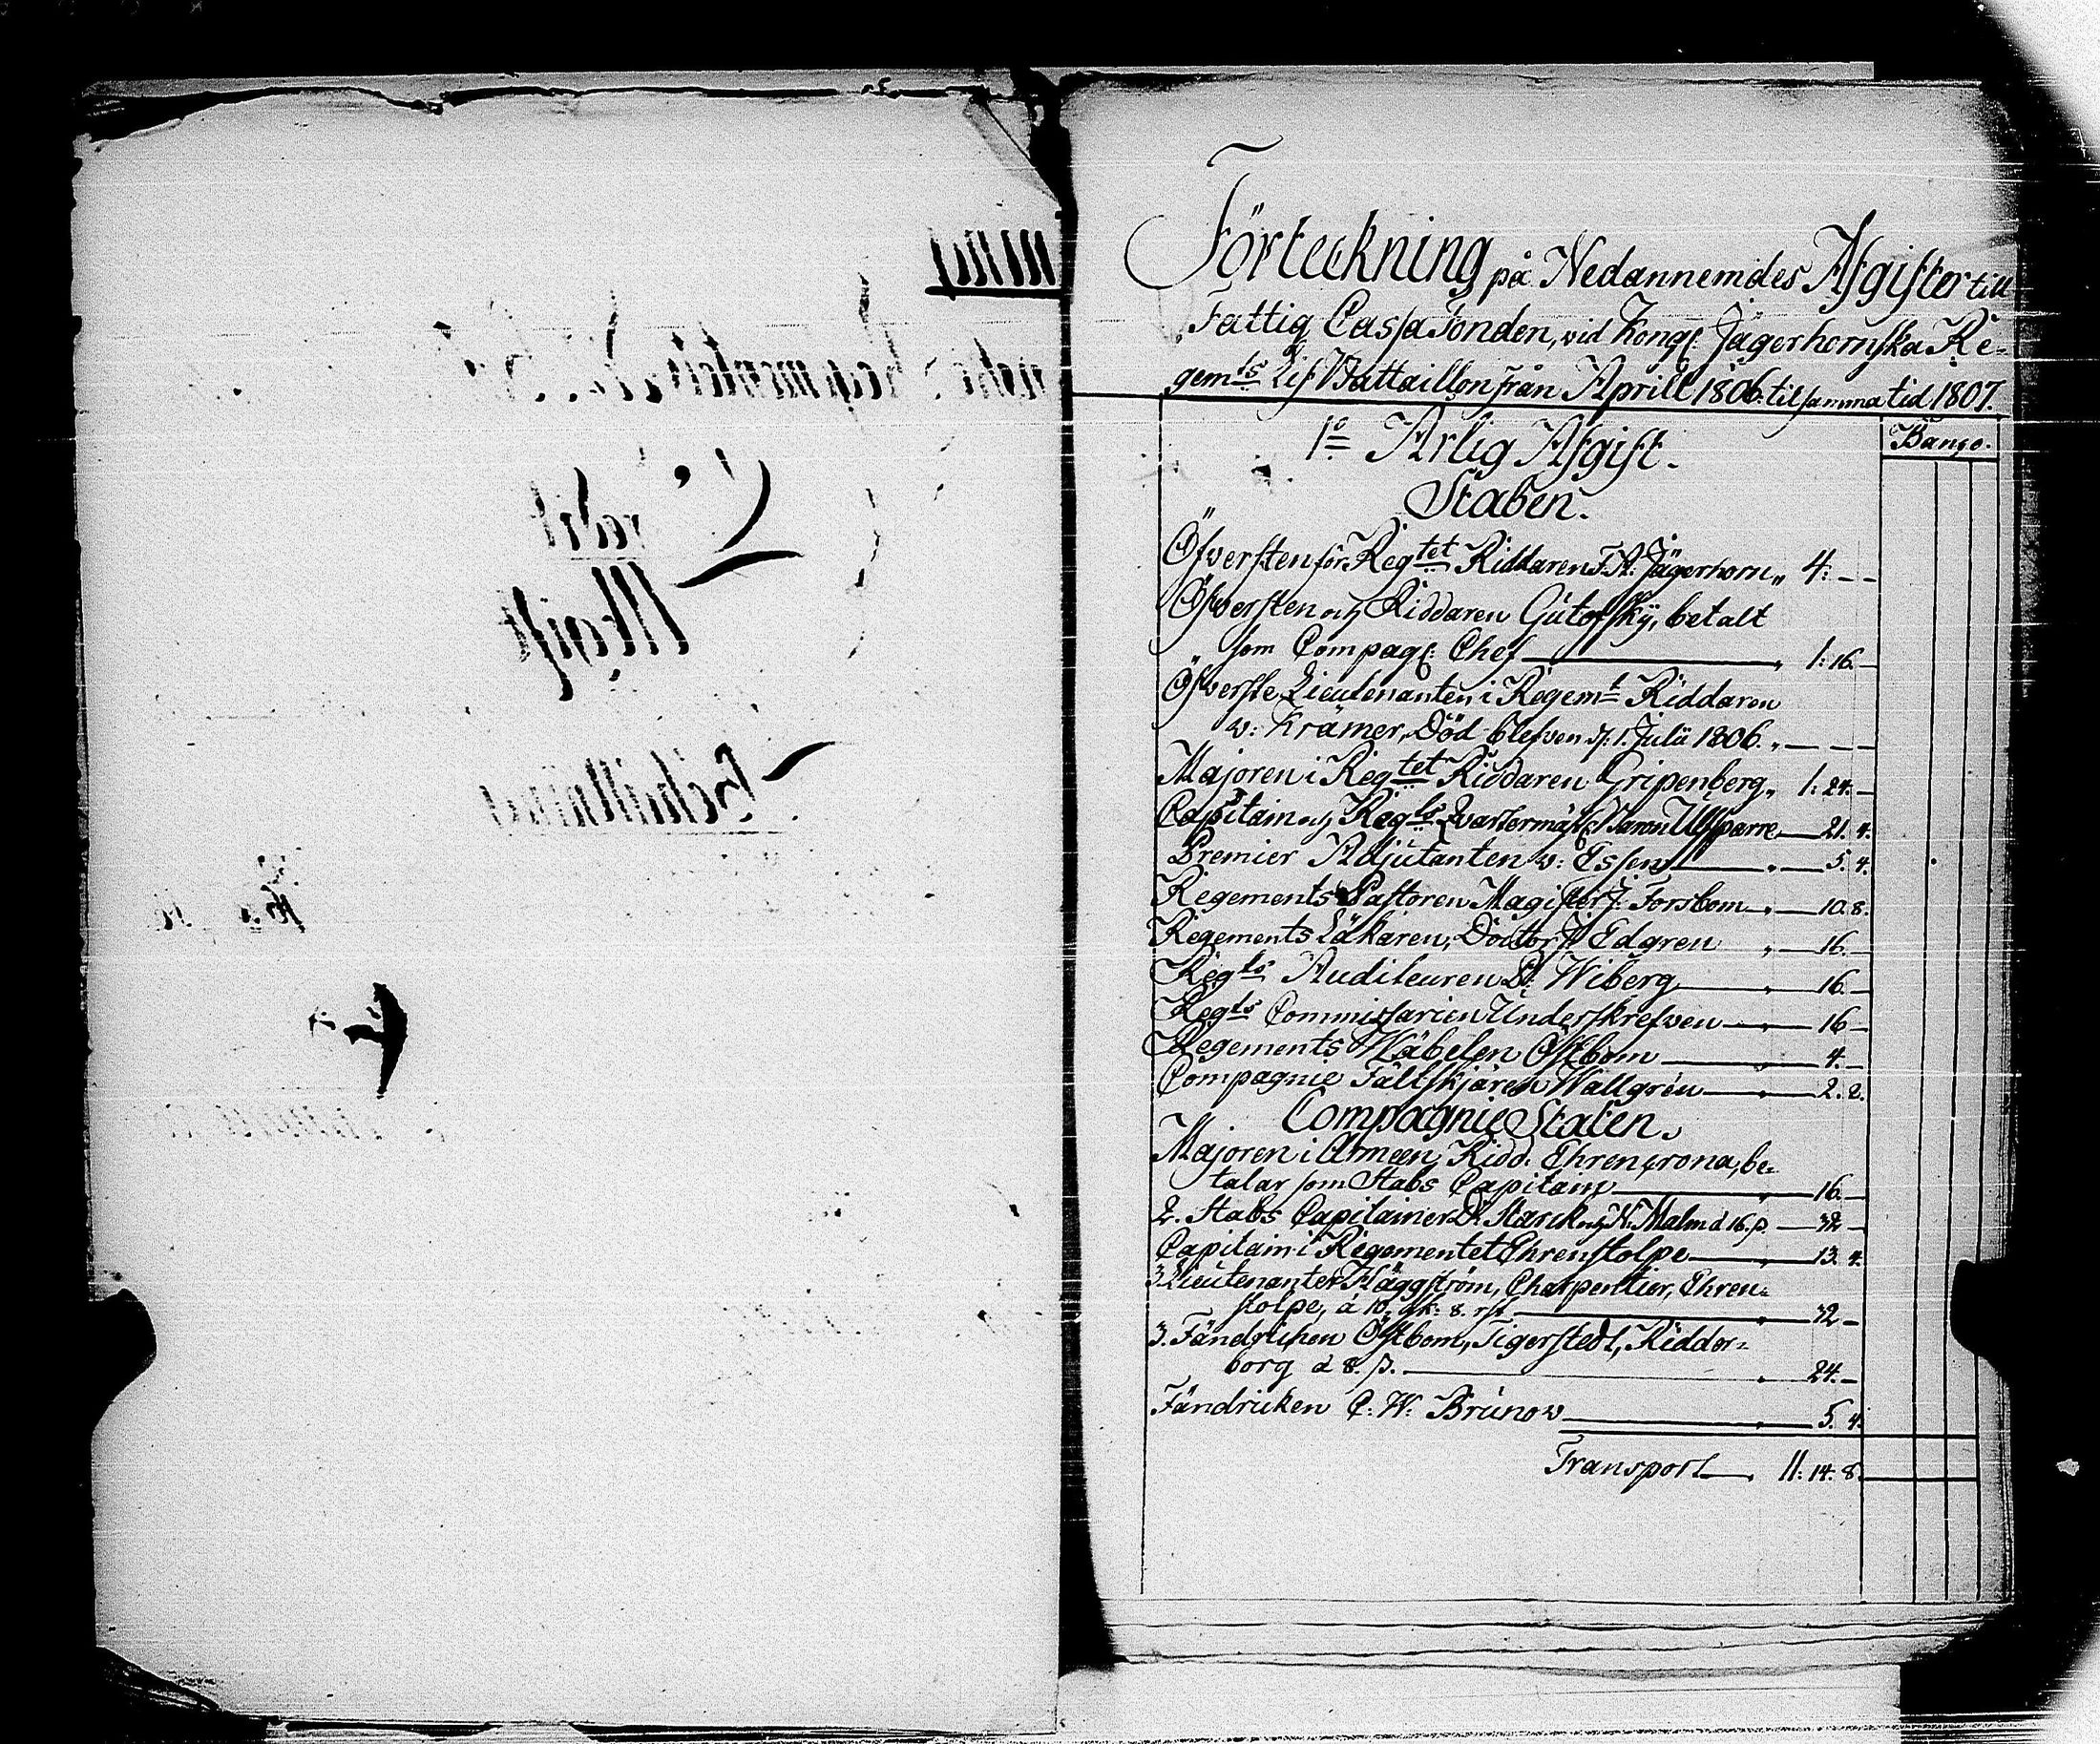 Förteckning på Nedannemdes Afgifter till
Fattig Cassa Fonden, vid Kongl. Jägerhornska Re-
gemts Lif Battaillon från Aprill 1806. til samma tid 1807.
1o Årlig Afgift.
Banco.
Staben.
Öfversten för Regtet Riddaren F.A. Jägerhorn „ 4: - -
Öfversten och Riddaren Gutofsky, betalt
som Compagl: Chef „ 1: 16. -
Öfverste Lieutenanten i Regemt Riddaren
v: Krämer, Död blefven d: 1. Julii 1806. „ - - -
Majoren i Regtet Riddaren Gripenberg „ 1: 24. -
Capitain och Regts Qvartermäst: Baron Ulfsparre 21. 4.
Premier Adjutanten v: Essen „ 5. 4.
Regements Pastoren Magister J: Forsbom „ 10. 8.
Regements Läkaren, Doctor J: Edgren „ 16. -
Regts Auditeuren Wiberg „ 16. -
Regts Commissarien Underskrefven „ 16 -
Regements Wäbelen Östbom „ 4. -
Compagnie Fältskjären Wallgren „ 2. 2.
Compagnie Staten.
Majoren i Armeen, Ridd. Ehrencrona, be-
talar som Stabs Capitain „ 16. -
2. Stabs Capitainer D. Starck och N. Malm á 16. s. 32 -
Capitain i Regementet Ehrenstolpe „ 13. 4.
3. Lieutenanter Häggström, Charpentier, Ehren-
stolpe, á 10, sk: 8. rst „ 32 -
3. Fändrichen Östbom, Tigerstedt, Ridder-
borg á 8. s. „ 24. -
Fändricken C: W: Brunow „ 5. 4.
Transport „ 11: 14. 8.